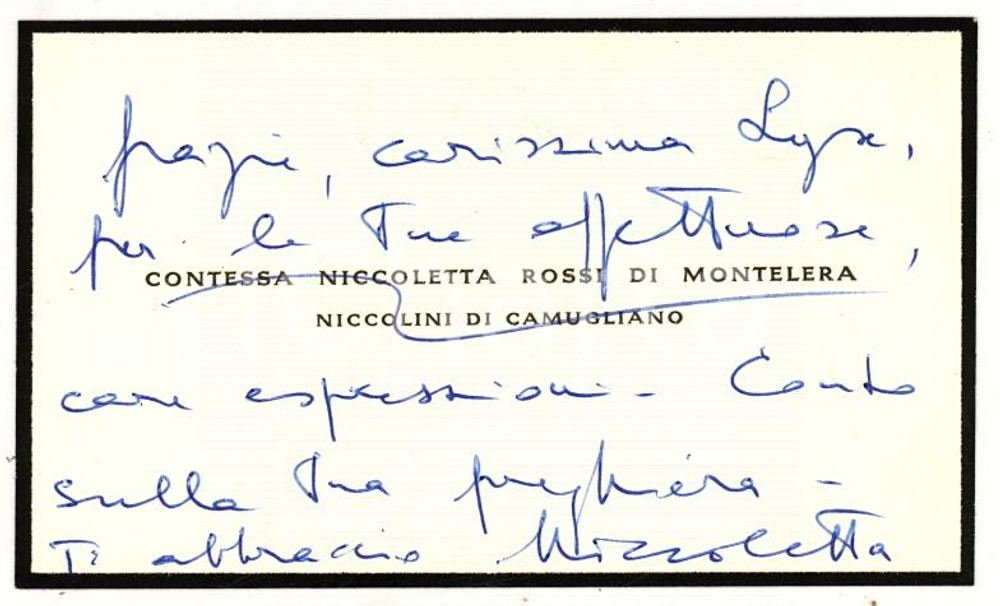 grazie, carissima Lysa,
per le Tue affettuose,
CONTESSA NICCOLETTA ROSSI DI MONTELERA
NICCOLINI DI CAMUGLIANO
care espressioni - Conto
sulla Tua preghiera -
Ti abbraccio Niccoletta